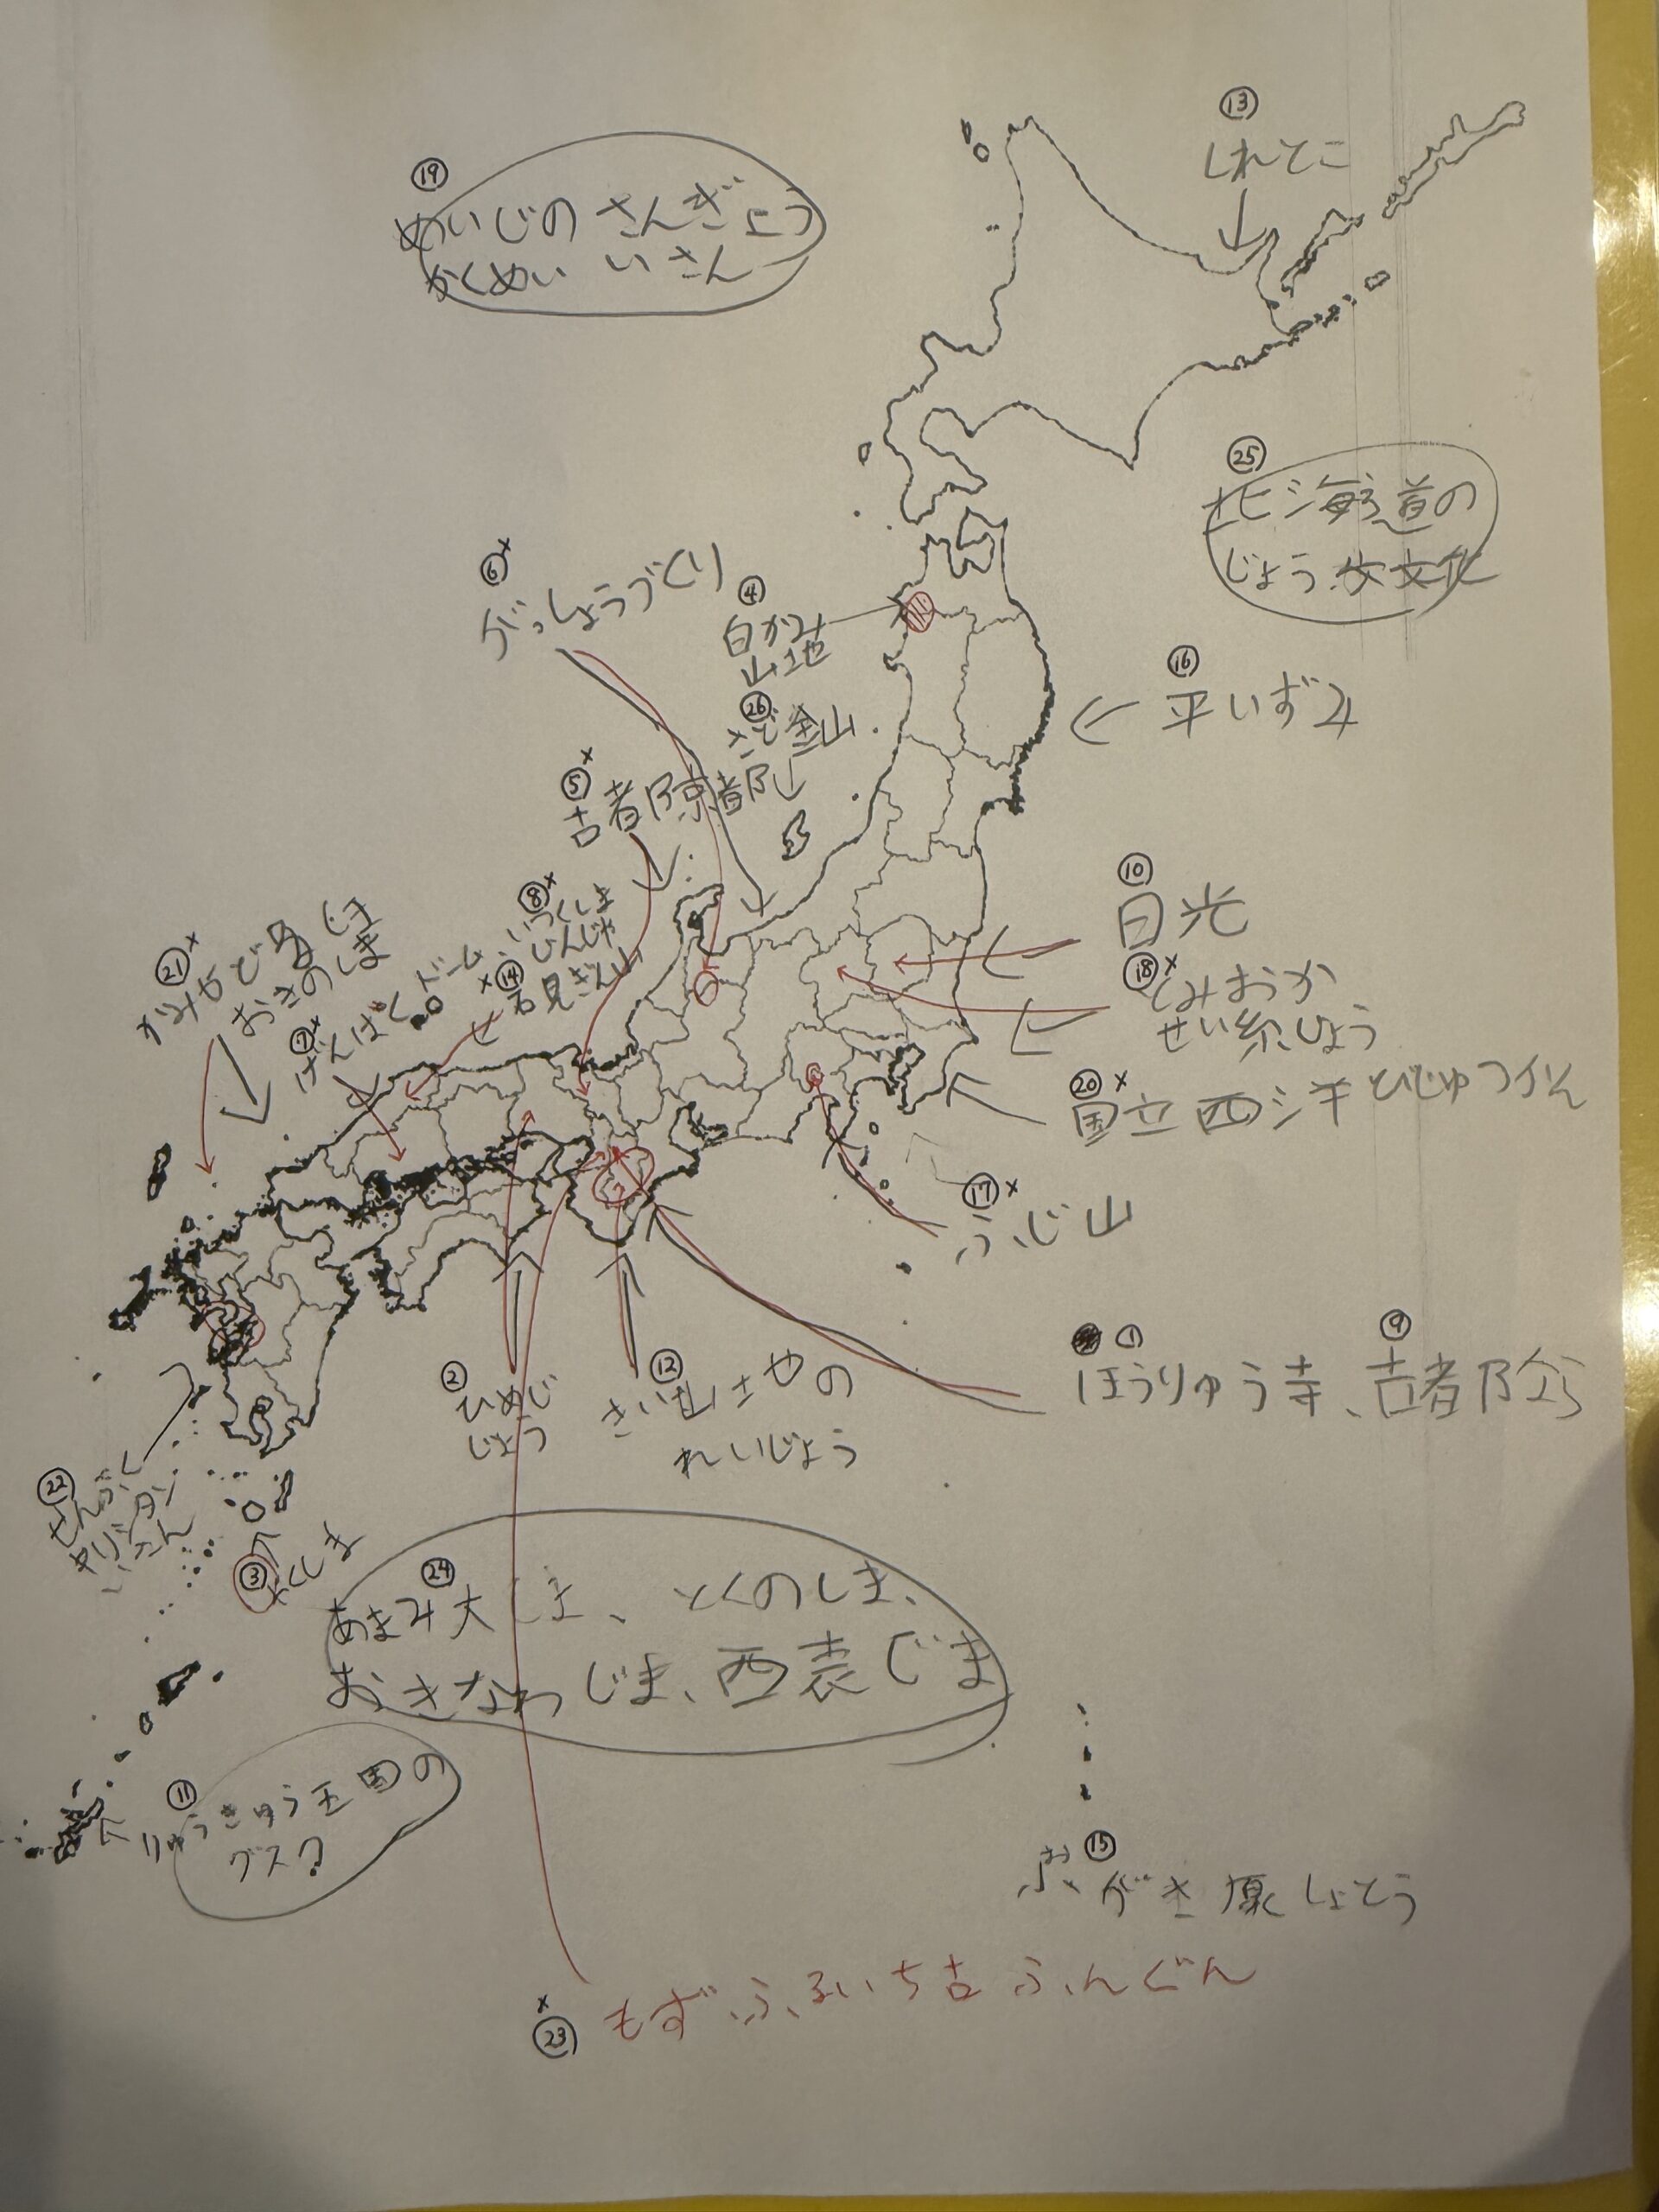 ⑬
しれとこ
⑲
めいじの さんぎょう
かくめい いさん
㉕
北海道の
じょう文文化
⑥×
がっしょうづくり
④
白かみ
山地
⑯
平いずみ
㉖
さど金山
⑤×
古都京都
⑧×
いつくしま
じんじゃ
⑩
日光
⑱×
とみおか
せい糸じょう
×⑭
石見ぎん山
㉑×
かみやどる しま
おきのしま
⑦×
げんばくドーム
⑳×
国立西洋びじゅつかん
⑰×
ふじ山
① ⑨
ほうりゅう寺、古都なら
②
ひめじ
じょう
⑫
きい山さちの
れいじょう
㉒
せんぷく
キリシタン
いさん
③
やくしま
㉔
あまみ大しま、とくのしま、
おきなわじま、西表じま
⑪
りゅうきゅう王国の
グスク
⑮
おがさ原しょとう
×
㉓ もずふるいち古ふんぐん